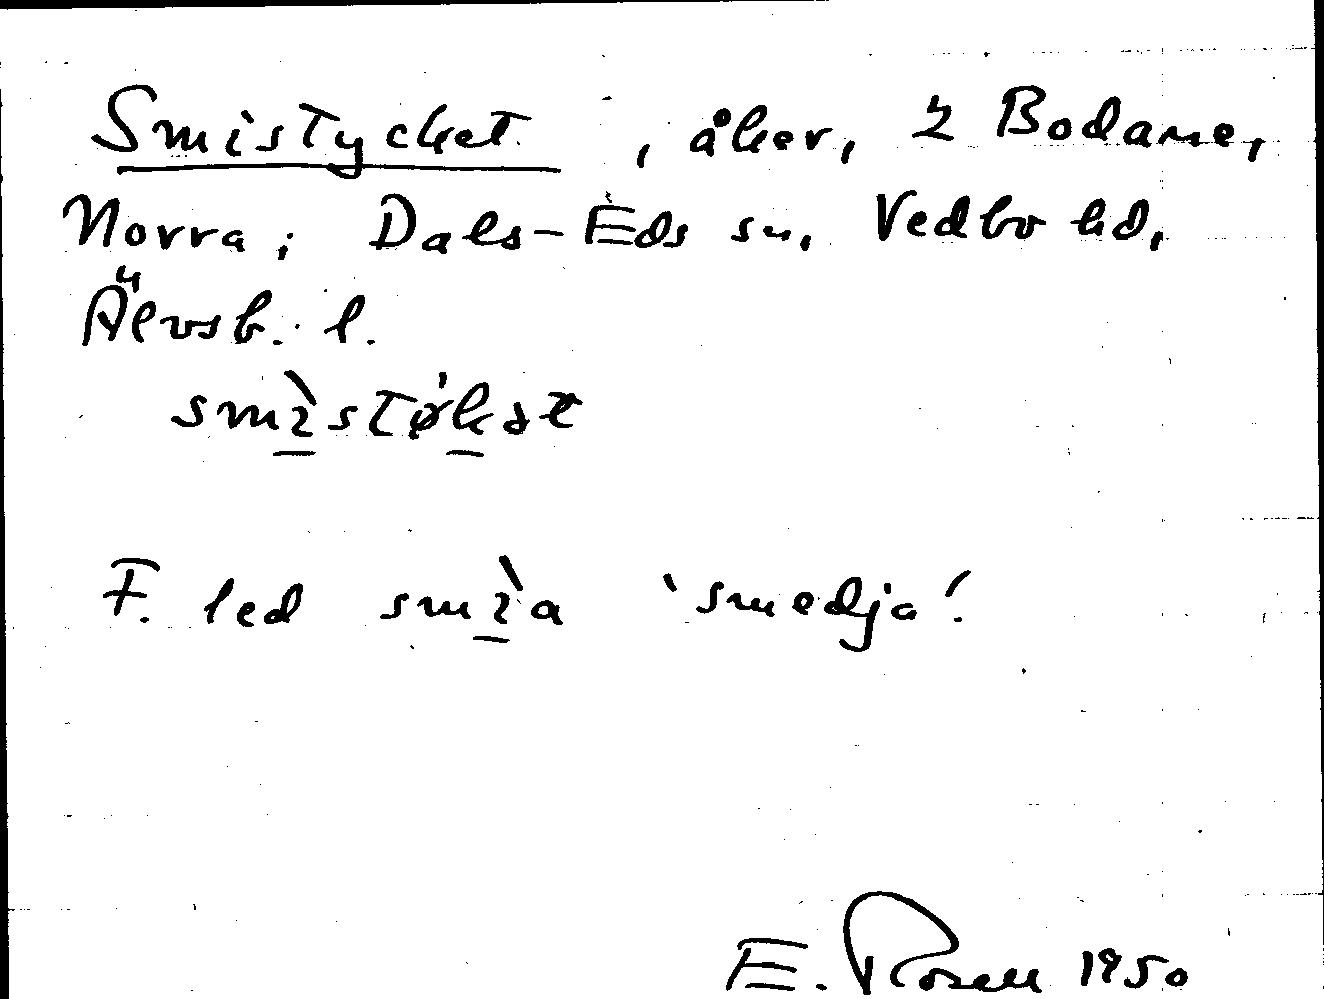 Smistycket, åker, 2 Bodarne,
Norra; Dals-Eds sn, Vedbo hd,
Älvsb. l.
smı̀stø̍kət
F. led smı̀a 'smedja'.
E. Rosell 1950